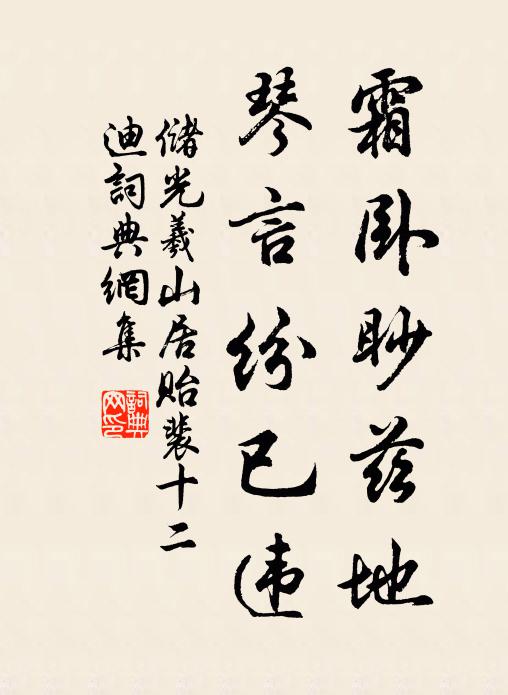 霜卧眇兹地
琴言纷已违
储光羲山居贻裴十二
迪詞典網集
詞典网印